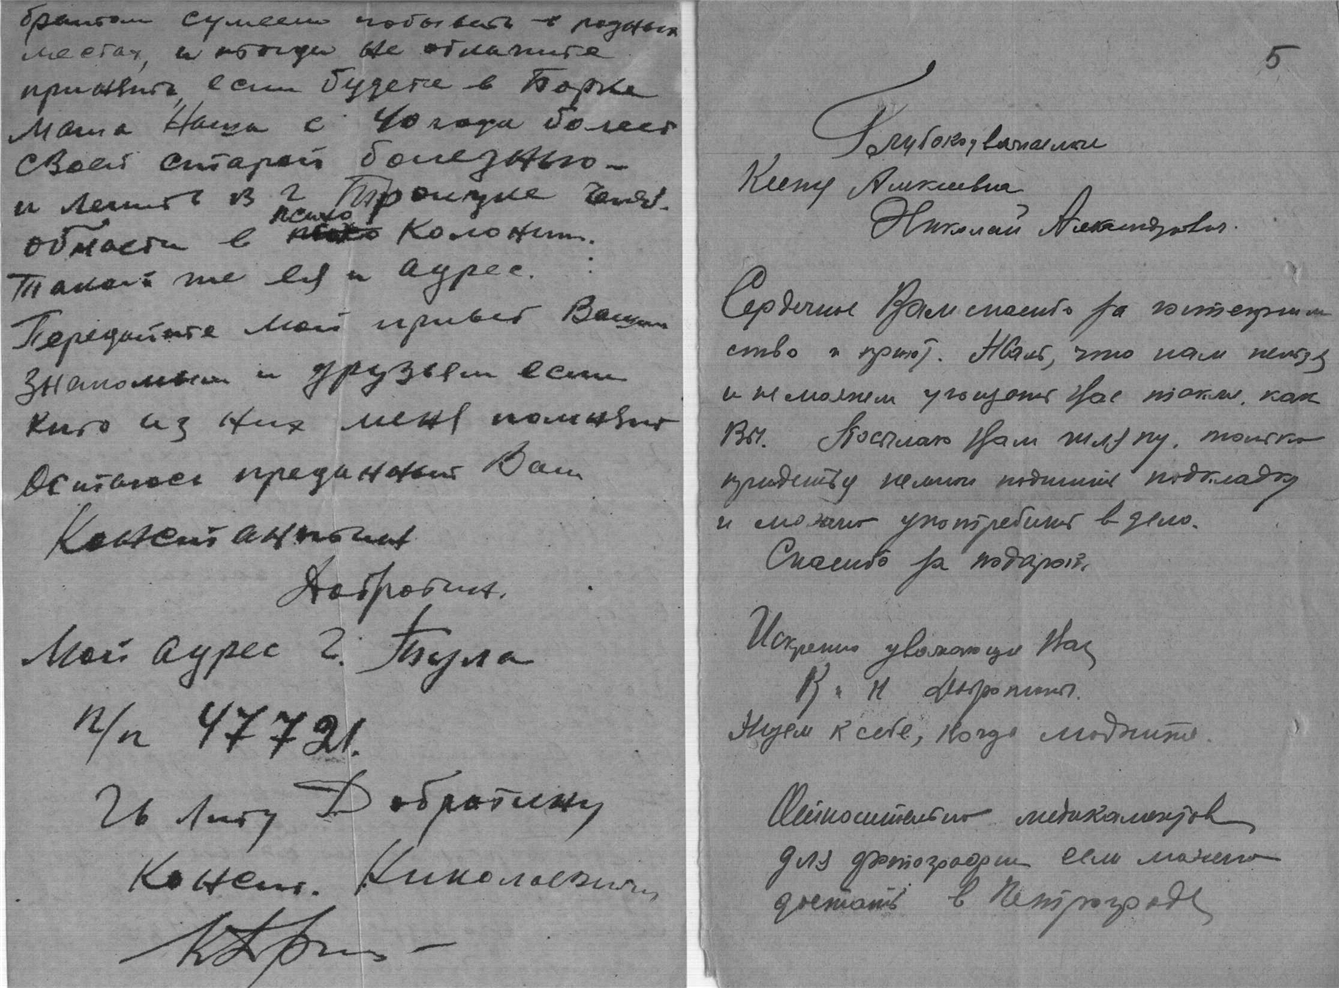 братом сумеем побывать в родных
местах, и тогда не откажите
принять, если будете в Борке
Мама Наша с 40 года болеет
своей старой болезнью
и лежит в г. Троицке Челяб.
области в психо Колонии.
Такой же её и адрес.
Передайте мой привет Вашим
знакомым и друзьям если
кто из них меня помнит
Остаюсь преданный Вам
Константин
Добротин.
Мой адрес г. Тула
п/п 47721.
Гв Лт Добротину
Конст. Николаевичу
5
Глубокоуважаемые
Ксения Алексеевна
Николай Александрович.
Сердечное Вам спасибо за гостеприим
ство и приют. Жаль, что нам нельзя
и не можем угощать Вас так, как
Вы. Посылаю Вам шляпу. только
придется немного подшить подкладку
и можно употребить в дело.
Спасибо за подарок.
Искренно уважающие Вас
К и Н Добротины.
Ждем к себе, когда
Относительно медикаментов
для фотографии если можно
достать в Петрограде